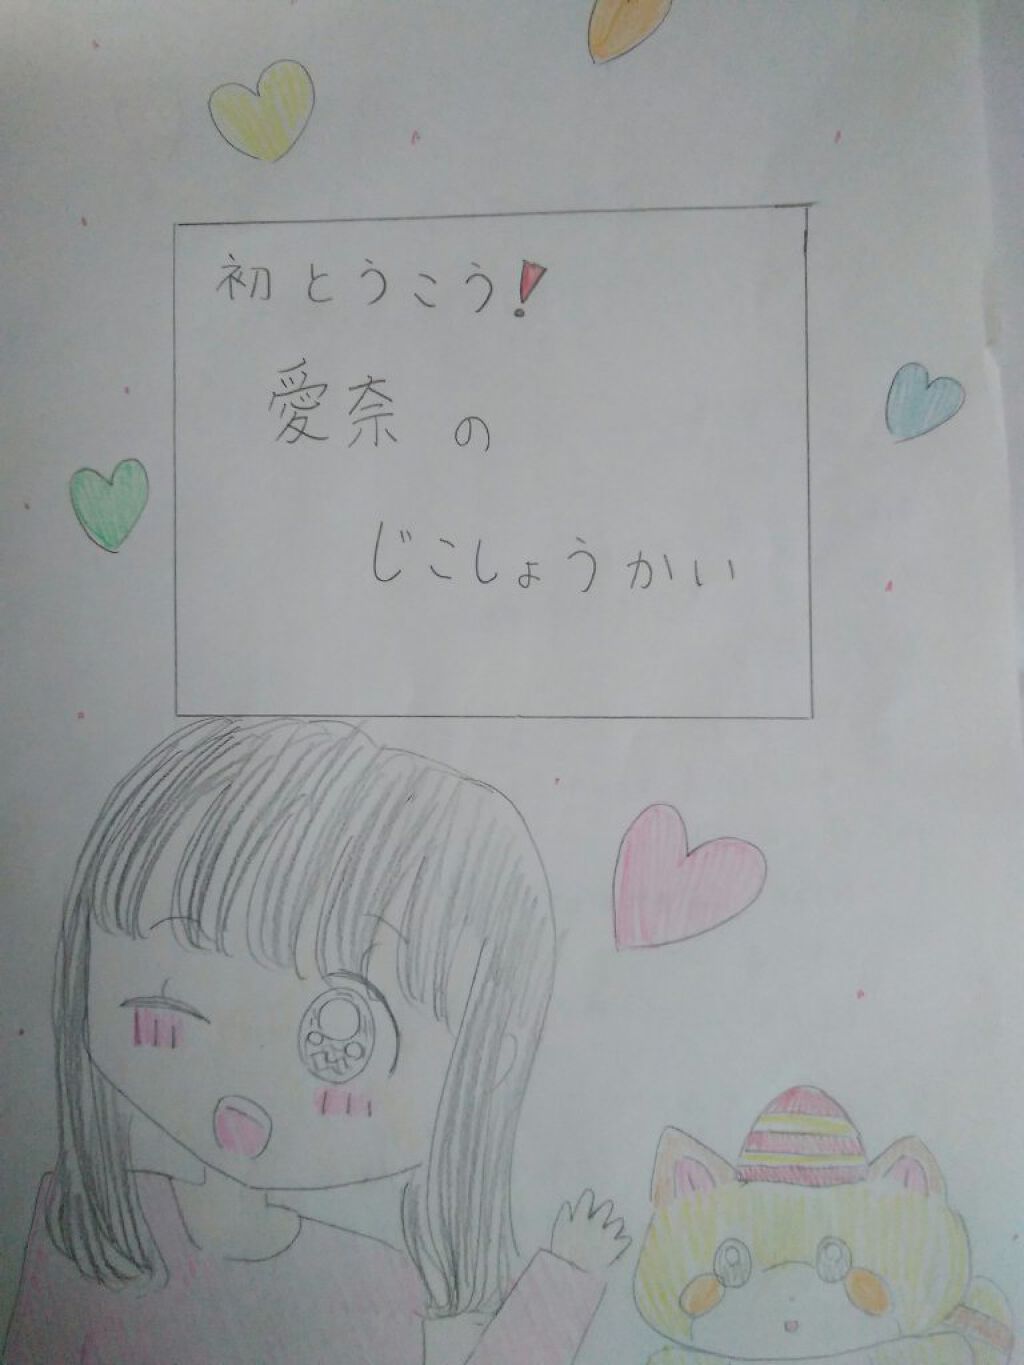 初とうこう!
愛奈の
じこしょうかい